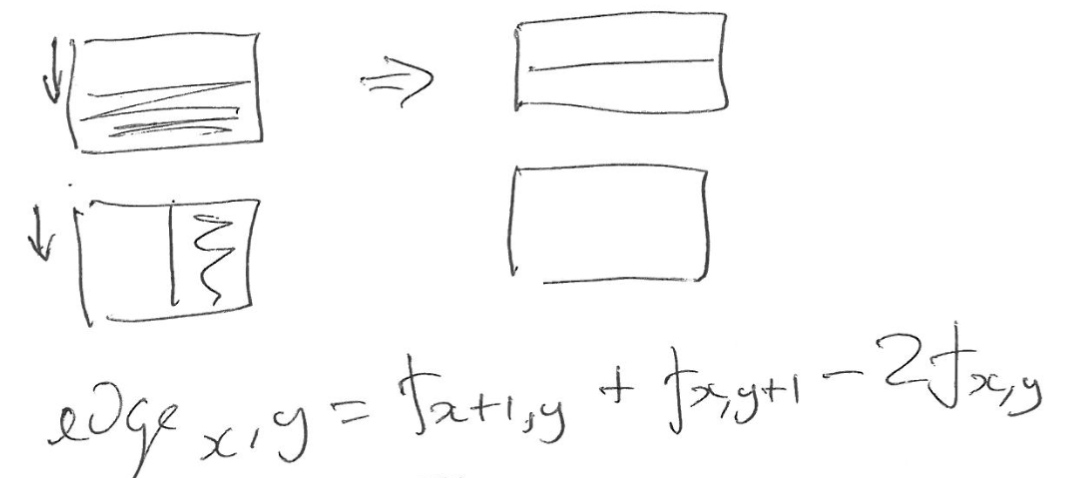 edge x,y = fx+1,y + fx,y+1 - 2fx,y